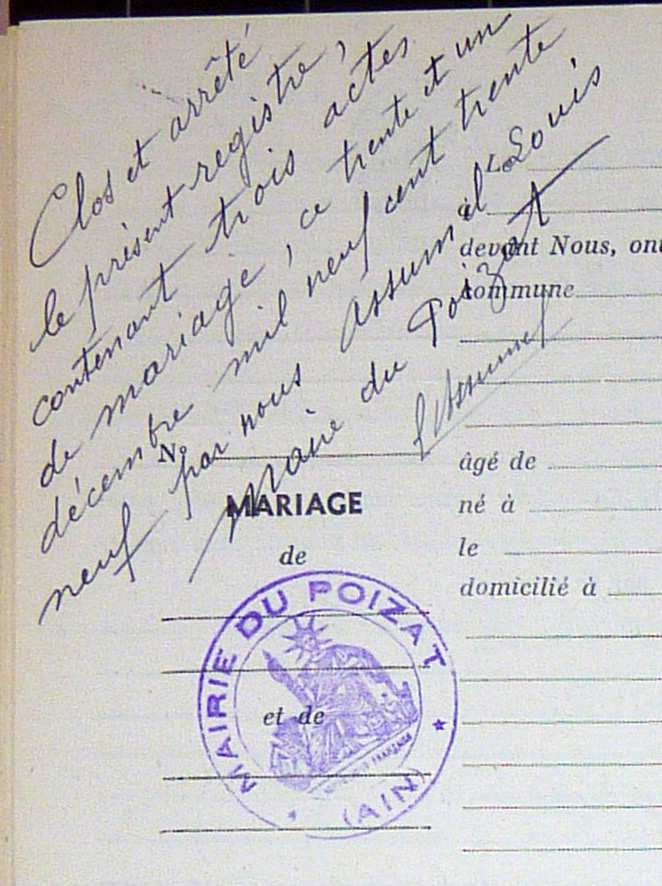 Clos et arrêté
le présent registre,
contenant trois actes
de mariage, ce trente et un
décembre mil neuf cent trente
neuf par nous Assumel Louis
Maire du Poizat
L Assumel
N°
MARIAGE
de
et de
à
devant Nous, ont
commune
âgé de
né à
le
domicilié à
MAIRIE DU POIZAT
(AIN)
FRANÇAISE